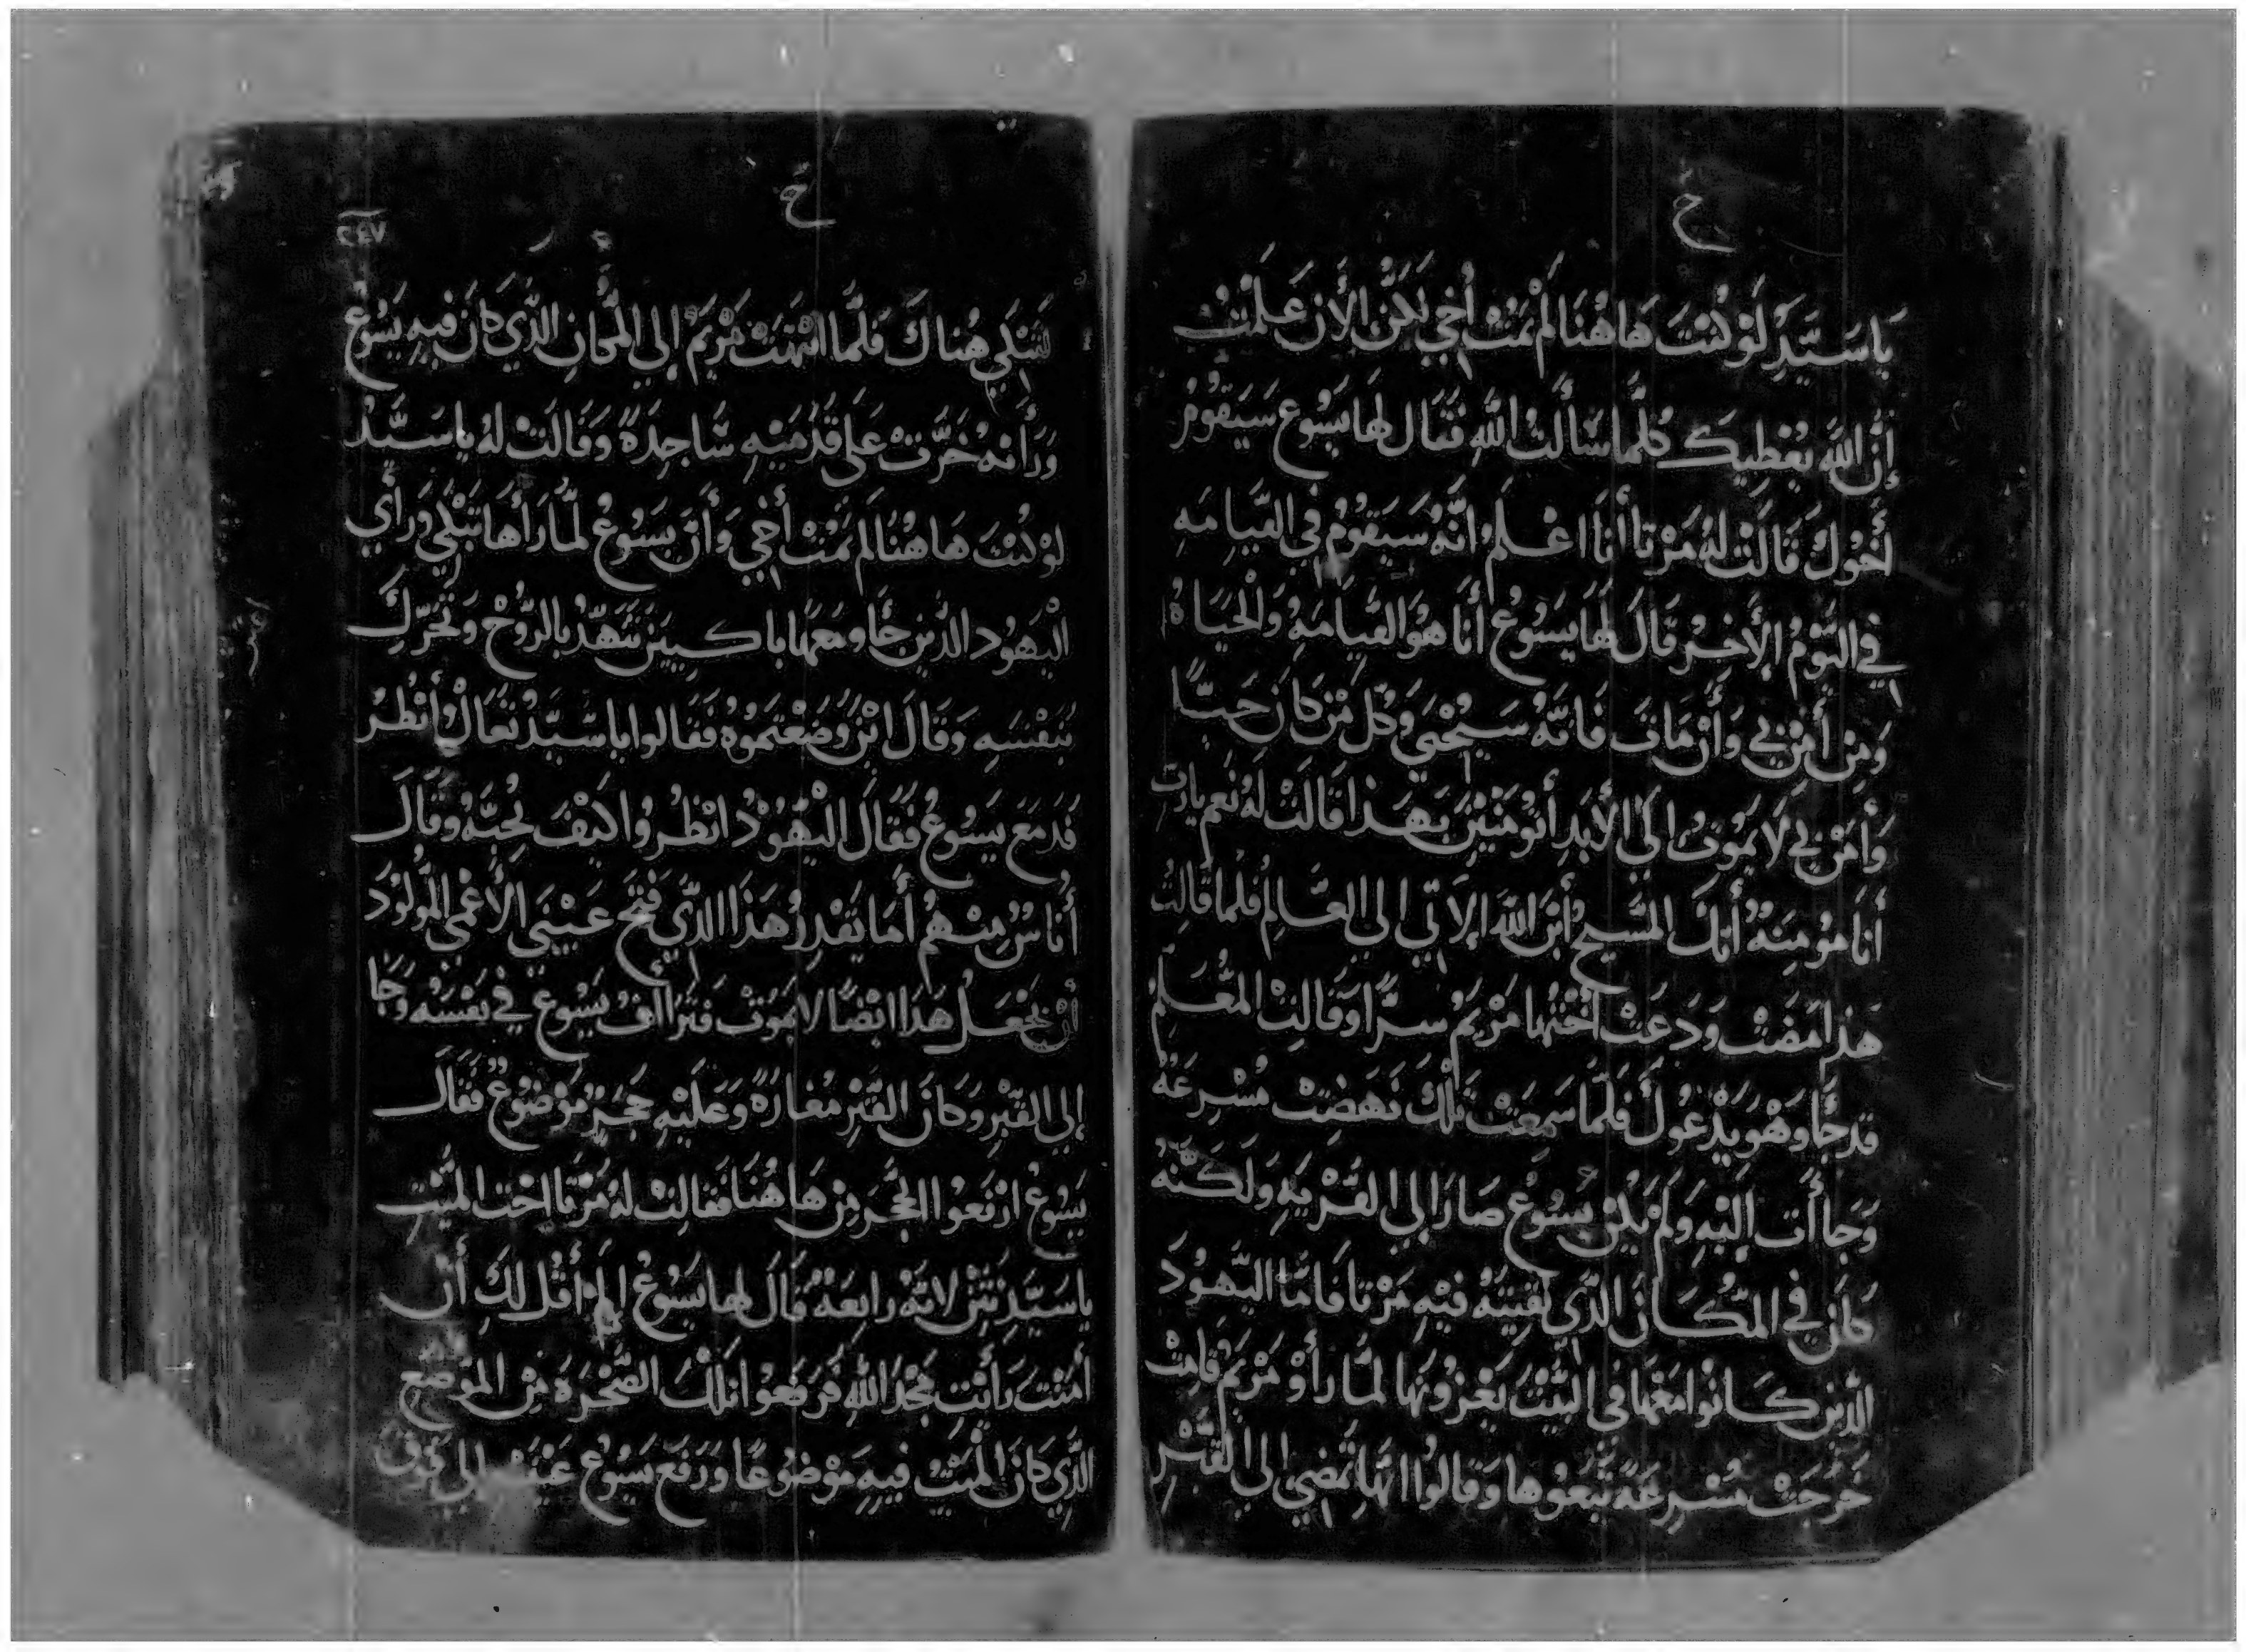 ح
يَا سَيِّدِ لَوْ كُنْتَ هَا هُنَا لَمْ يَمُتْ أَخِي لَكِنْ الأَن عَلِمْتُ
إنَّ اللَّه يُعْطِيكَ كُلَّمَا سَأَلْتَ اللَّهِ فَقَال لَهَا يَسُوع سَيَقُومُ
أَخُوكِ قَالَتْ لَهُ مَرْتَا أَنَا اعْلَمُ انَّهُ سَيَقُومُ فِي القِيَامَهِ
فِي اليَوْمِ الأَخِرِ قَالَ لَهَا يَسُوعُ أَنَا هُوَ القِيَامَهُ وَالْحَيَاهُ
وَمَن أَمَنَ بِي وَأَنْ مَاتَ فَانَّهُ سَيُحْيَي وَكُل مَنْ كَانَ حَيًّا
وَأَمَنْ بِي لَا يَمُوت الَي الأَبَدِ أَتُؤمِنِينَ بِهَذَا قَالَتْ لَهُ نَعَم يَارَب
أَنَا مُؤمِنَهٌ أَنَكَ المَسِيح أبنَ اللَّه الاَتِي الي العَالِمِ فَلَمَا قَالَت
هَذَا مَضَتْ وَدَعَتْ أُخْتِهَا مَرْيَمُ سِرًّا وَقَالَت المُعَلِّمُ
قد جَا وَهْوَ يَدْعُوكِ فَلَمَّا سَمِعَتْ تِلْكَ نَهَضَتْ مُسْرِعَهً
وَجَاأَت إلَيْهِ وَلَمْ يَكُنْ يَسُوعُ صَارَ إلي القَرْيَهِ وَلَكِنَهُ
كَان فِي المَكَانِ الَّذِي لَقِيَتْهُ فِيْهِ مَرْتَا فَامَّا اليَهُودَ
الَّذِين كَانُوا مَعَهَا فِي البَيْتَ يُعَزُونَهَا لَمَّا رَأَوْ مَرْيَمَ قَامَتْ
خَرَجَتْ مُسْرِعَهً تَبِعُوهَا وَقَالُوا انَهَا تَمْضِي الي القَبْرِ
ح
٢٤٧
لِتَبْكِي هُنَاكَ فَلَمَّا انْتَهَتْ مَرْيَمُ إلي المَكَانِ الَّذِي كَانَ فِيهِ يَسُوعُ
وَرَأَتْهُ خَرَّتْ عَلَي قَدَمَيْهِ سَاجِدَهً وَقَالَتْ لَهُ يا سَيِّدُ
لَوْ كُنْتَ هَا هُنَا لَم يَمُتْ أَخِي وَأَنَّ يَسُوعُ لَمَّا رَأَهَا تَبْكِي وَرَأَي
الْيَهُودَ الَّذِين جَاو مَعَهَا بَاكِيِينَ تَنَهَّدَ بِالرُّوْحِ وَتَحَرَّكَ
بِنَفْسَهِ وَقَالَ ايْنَ وَضَعْتَمُوهُ فَقَالوا يا سَيِّدُ تَعَالْ وأَنْظُرُ
فَدَمَعَ يَسُوعُ فَقَالَ الْيَهُوْدُ انْظُرُوا كَيْفَ يُحِبُّهُ وَقَالَ
أُنَاسٌ مِنْهُمْ أَمَا يَقْدِرُ هَذَا الَّذِي فَتَح عَيْنَيَ الأَعْمَي المَوْلُوْدَ
أنْ يَجْعَلَ هَذَا ايْضًا لا يَمُوْت فَتَرَاأف يَسُوع فِي نَفْسَهُ وَجَا
إلي القَبْرِ وَكَانَ القَبْرِ مَغَارَهً وَعَلَيْهِ حَجَرٌ مَوْضُوعٌ فَقَالَ
يَسُوعُ ارْفَعُوا الحَجَر مِن هَا هُنَا فَقَالَتْ لَهُ مَرْتَا اخت المَيِّتِ
يا سَيِّد نَتَنْ لانَّهُ رابعَهٌ قَالَ لَهَا يَسُوعُ الم أَقُل لَكِ أن
أمَنْتِ رَأَيْتِ مَجْدَ اللَّهِ فَرَفَعُوا تِلْكَ الصَّخْرَهَ مِنَ المَوْضع
الَّذِي كَانَ المَيِّتُ فِيهِ مَوْضُوعًا وَرَفَع يَسُوعُ عَيْنَيْهِ إلي فَوْقُ